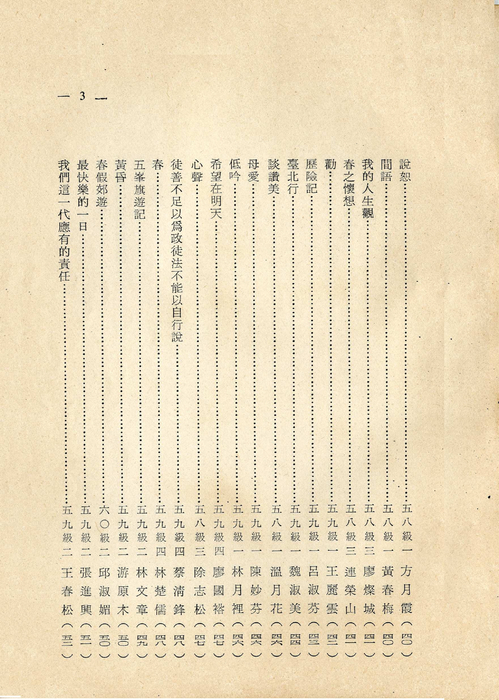 — 3 —
說恕……五八級一 方月霞(四〇)
間語……五八級一 黃春梅(四〇)
我的人生觀……五八級三 廖燦城(四一)
春之懷想……五八級三 連榮山(四一)
勸……五九級一 王麗雲(四二)
歷險記……五九級一 呂淑芬(四三)
臺北行……五九級一 魏淑美(四四)
談讚美……五八級一 溫月花(四六)
母愛……五九級一 陳妙芬(四六)
低吟……五九級一 林月裡(四六)
希望在明天……五九級四 廖國裕(四七)
心聲……五八級三 徐志松(四七)
徒善不足以爲政徒法不能以自行說……五九級四 蔡清鋒(四八)
春……五九級四 林楚儒(四八)
五峯旗遊記……五九級二 林文章(四九)
黃昏……五九級二 游原木(五〇)
春假郊遊……六〇級二 邱淑媚(五〇)
最快樂的一日……五九級二 張進興(五一)
我們這一代應有的責任……五九級二 王春松(五二)